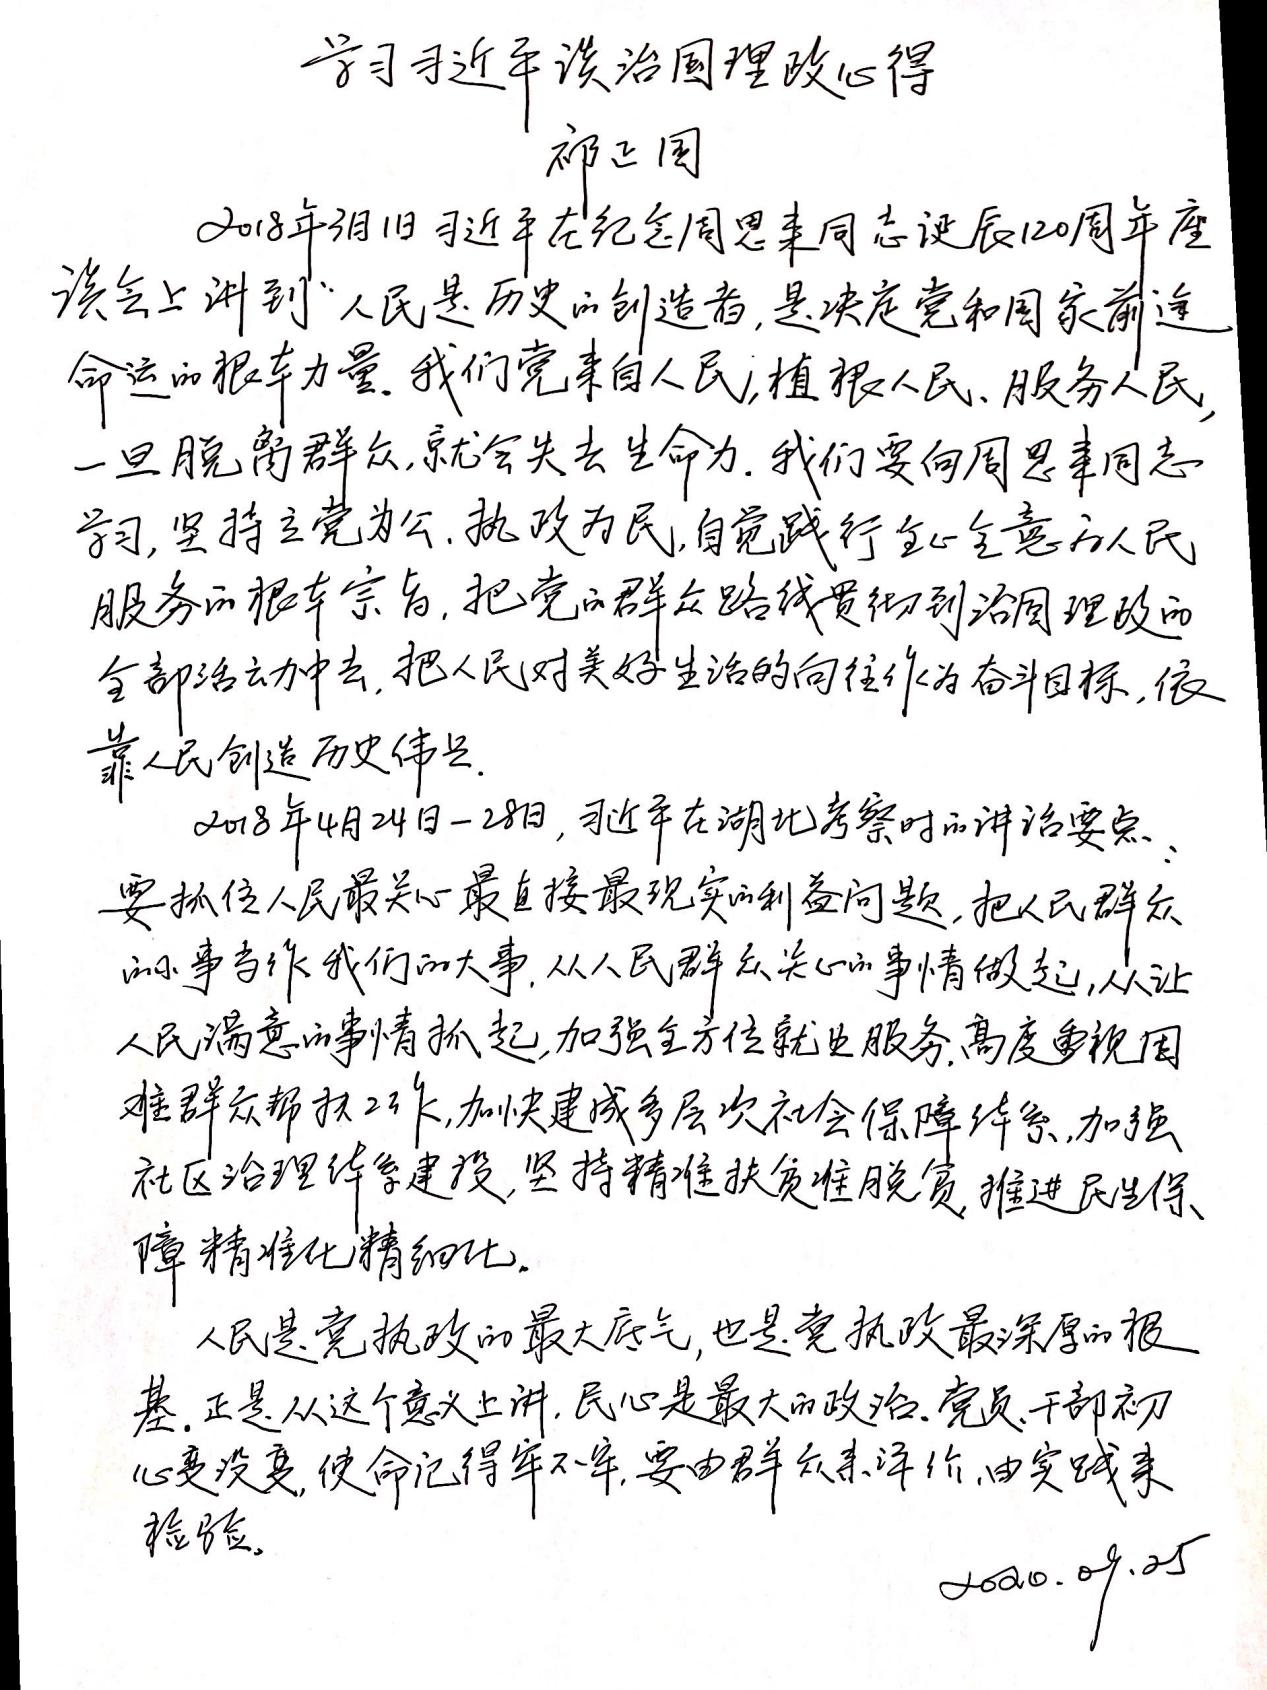 学习习近平谈治国理政心得
祁正国
2018年3月1日习近平在纪念周恩来同志诞辰120周年座
谈会上讲到“人民是历史的创造者,是决定党和国家前途
命运的根本力量.我们党来自人民,植根人民、服务人民,
一旦脱离群众,就会失去生命力.我们要向周恩来同志
学习,坚持立党为公.执政为民,自觉践行全心全意为人民
服务的根本宗旨,把党的群众路线贯彻到治国理政的
全部活动中去,把人民对美好生活的向往作为奋斗目标,依
靠人民创造历史伟业.
2018年4月24日—28日,习近平在湖北考察时的讲话要点:
要抓住人民最关心最直接最现实的利益问题,把人民群众
的小事当作我们的大事,从人民群众关心的事情做起,从让
人民满意的事情抓起,加强全方位就业服务,高度重视困
难群众帮扶工作,加快建成多层次社会保障体系,加强
社区治理体系建设,坚持精准扶贫准脱贫,推进民生保
障精准化精细化。
人民是党执政的最大底气,也是党执政最深厚的根
基.正是从这个意义上讲.民心是最大的政治.党员、干部初
心变没变,使命记得牢不牢,要由群众来评价,由实践来
检验。
2020.09.25